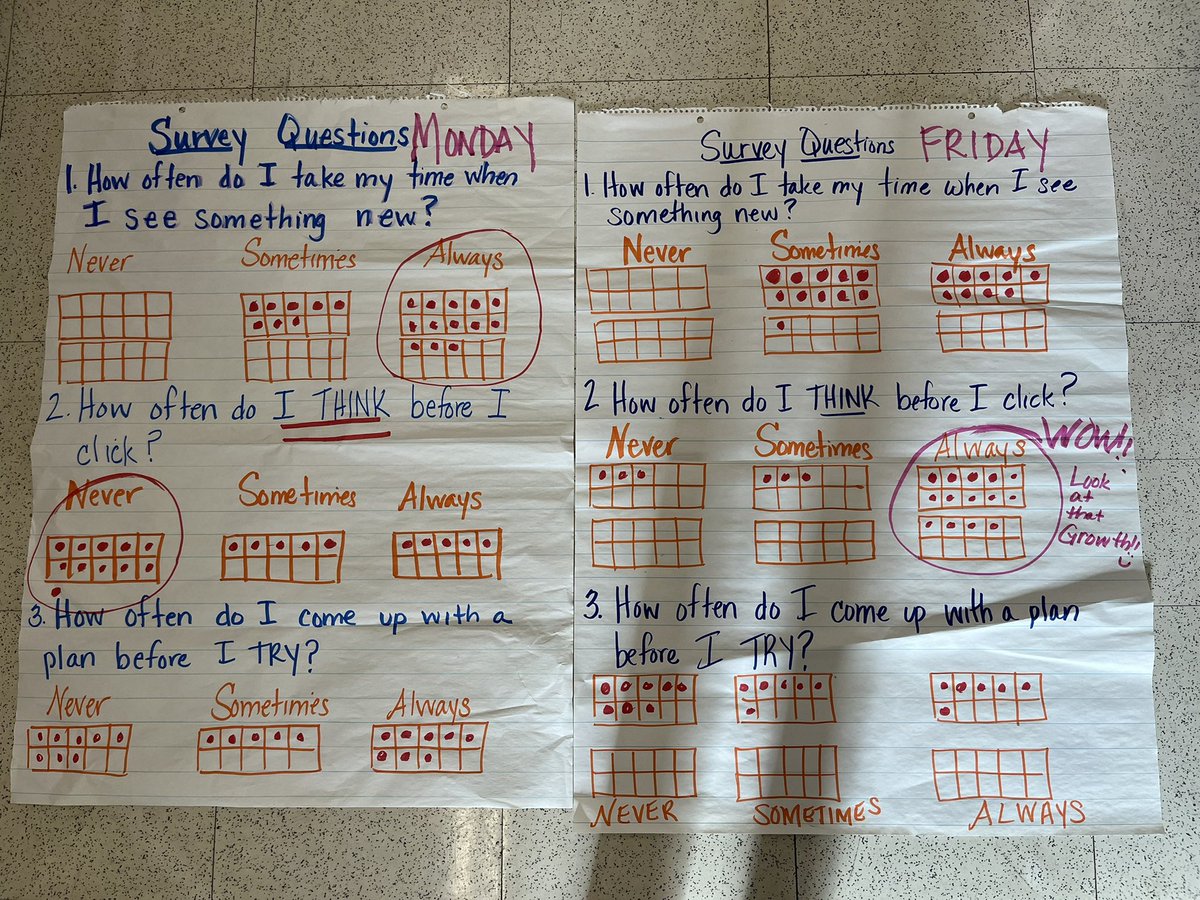 Survey Questions MONDAY
1. How often do I take my time when
I see something new?
Never Sometimes Always
2. How often do I THINK before I
click?
Never Sometimes Always
3. How often do I come up with a
plan before I TRY?
Never Sometimes Always
Survey Questions FRIDAY
1. How often do I take my time when I see
something new?
Never Sometimes Always
2 How often do I THINK before I click?
Never Sometimes Always
WOW!!
Look
at
that
Growth!!
3. How often do I come up with a plan
before I TRY?
NEVER SOMETIMES ALWAYS